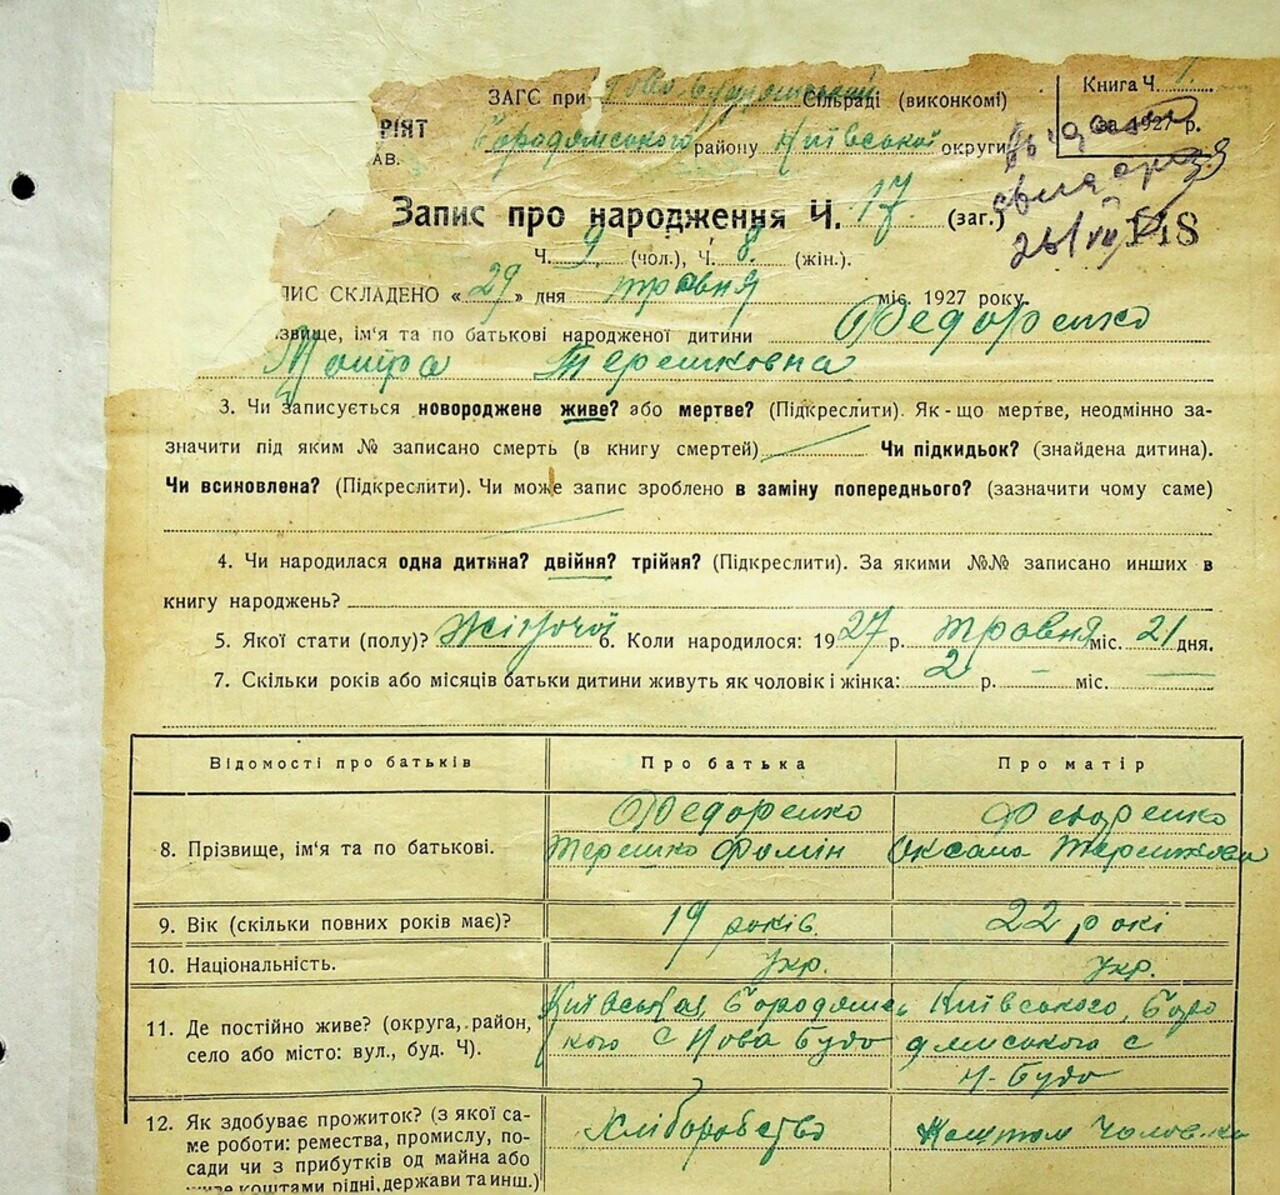 ЗАГС при Ново-Будянській Сільраді (виконкомі)
Книга Ч. 1.
за 1927 р.
РІЯТ
АВ.
Бородянського району Київської округи
Запис про народження Ч. 17 (заг.)
118
Ч. 9. (чол.), Ч. 8. (жін.).
ПИС СКЛАДЕНО « 29 » дня травня міс. 1927 року.
звище, ім'я та по батькові народженої дитини Федоренко
Мотря Терешковна
3. Чи записується новороджене живе? або мертве? (Підкреслити). Як-що мертве, неодмінно за-
значити під яким № записано смерть (в книгу смертей) Чи підкидьок? (знайдена дитина).
Чи всиновлена? (Підкреслити). Чи може запис зроблено в заміну попереднього? (зазначити чому саме)
4. Чи народилася одна дитина? двійня? трійня? (Підкреслити). За якими №№ записано инших в
книгу народжень?
5. Якої стати (полу)? Жіночої 6. Коли народилося: 1927 р. травня міс. 21 дня.
7. Скільки років або місяців батьки дитини живуть як чоловік і жінка: 2 р. — міс. —
Відомості про батьків Про батька Про матір
8. Прізвище, ім'я та по батькові.
Федоренко
Терешко Фомін
Федоренко
Оксана Терешкова
9. Вік (скільки повних років має)? 19 років. 22 рокі
10. Національність. укр. укр.
11. Де постійно живе? (округа, район,
село або місто: вул., буд. Ч).
Київська, Бородянсь
кого с Нова Буда
Київського, Боро
дянського с
Н-Буда
12. Як здобуває прожиток? (з якої са-
ме роботи: ремества, промислу, по-
сади чи з прибутків од майна або
живе коштами рідні, держави та инш.)
Хліборобство
Коштом чоловіка